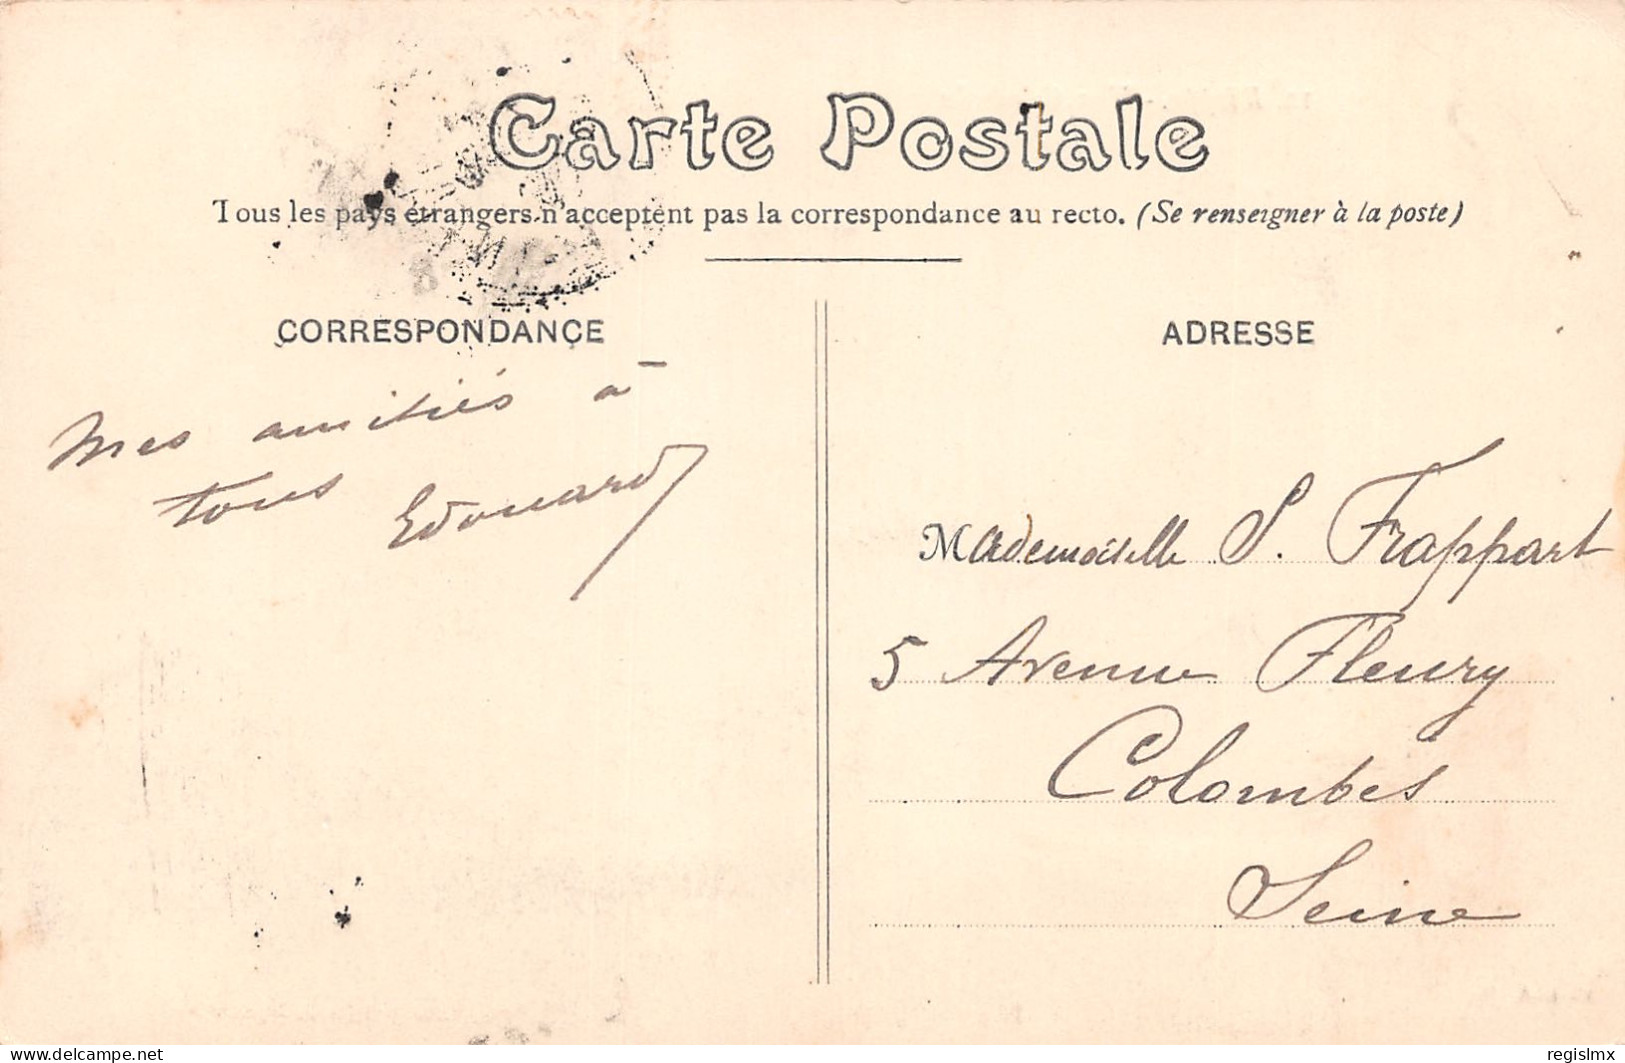 Carte Postale
Tous les pays étrangers n'acceptent pas la correspondance au recto. (Se renseigner à la poste)
CORRESPONDANCE
Mes amitiés à
tous Edouard
ADRESSE
Mademoiselle S. Frappart
5 Avenue Fleury
Colombes
Seine
delcampe.net
regislmx